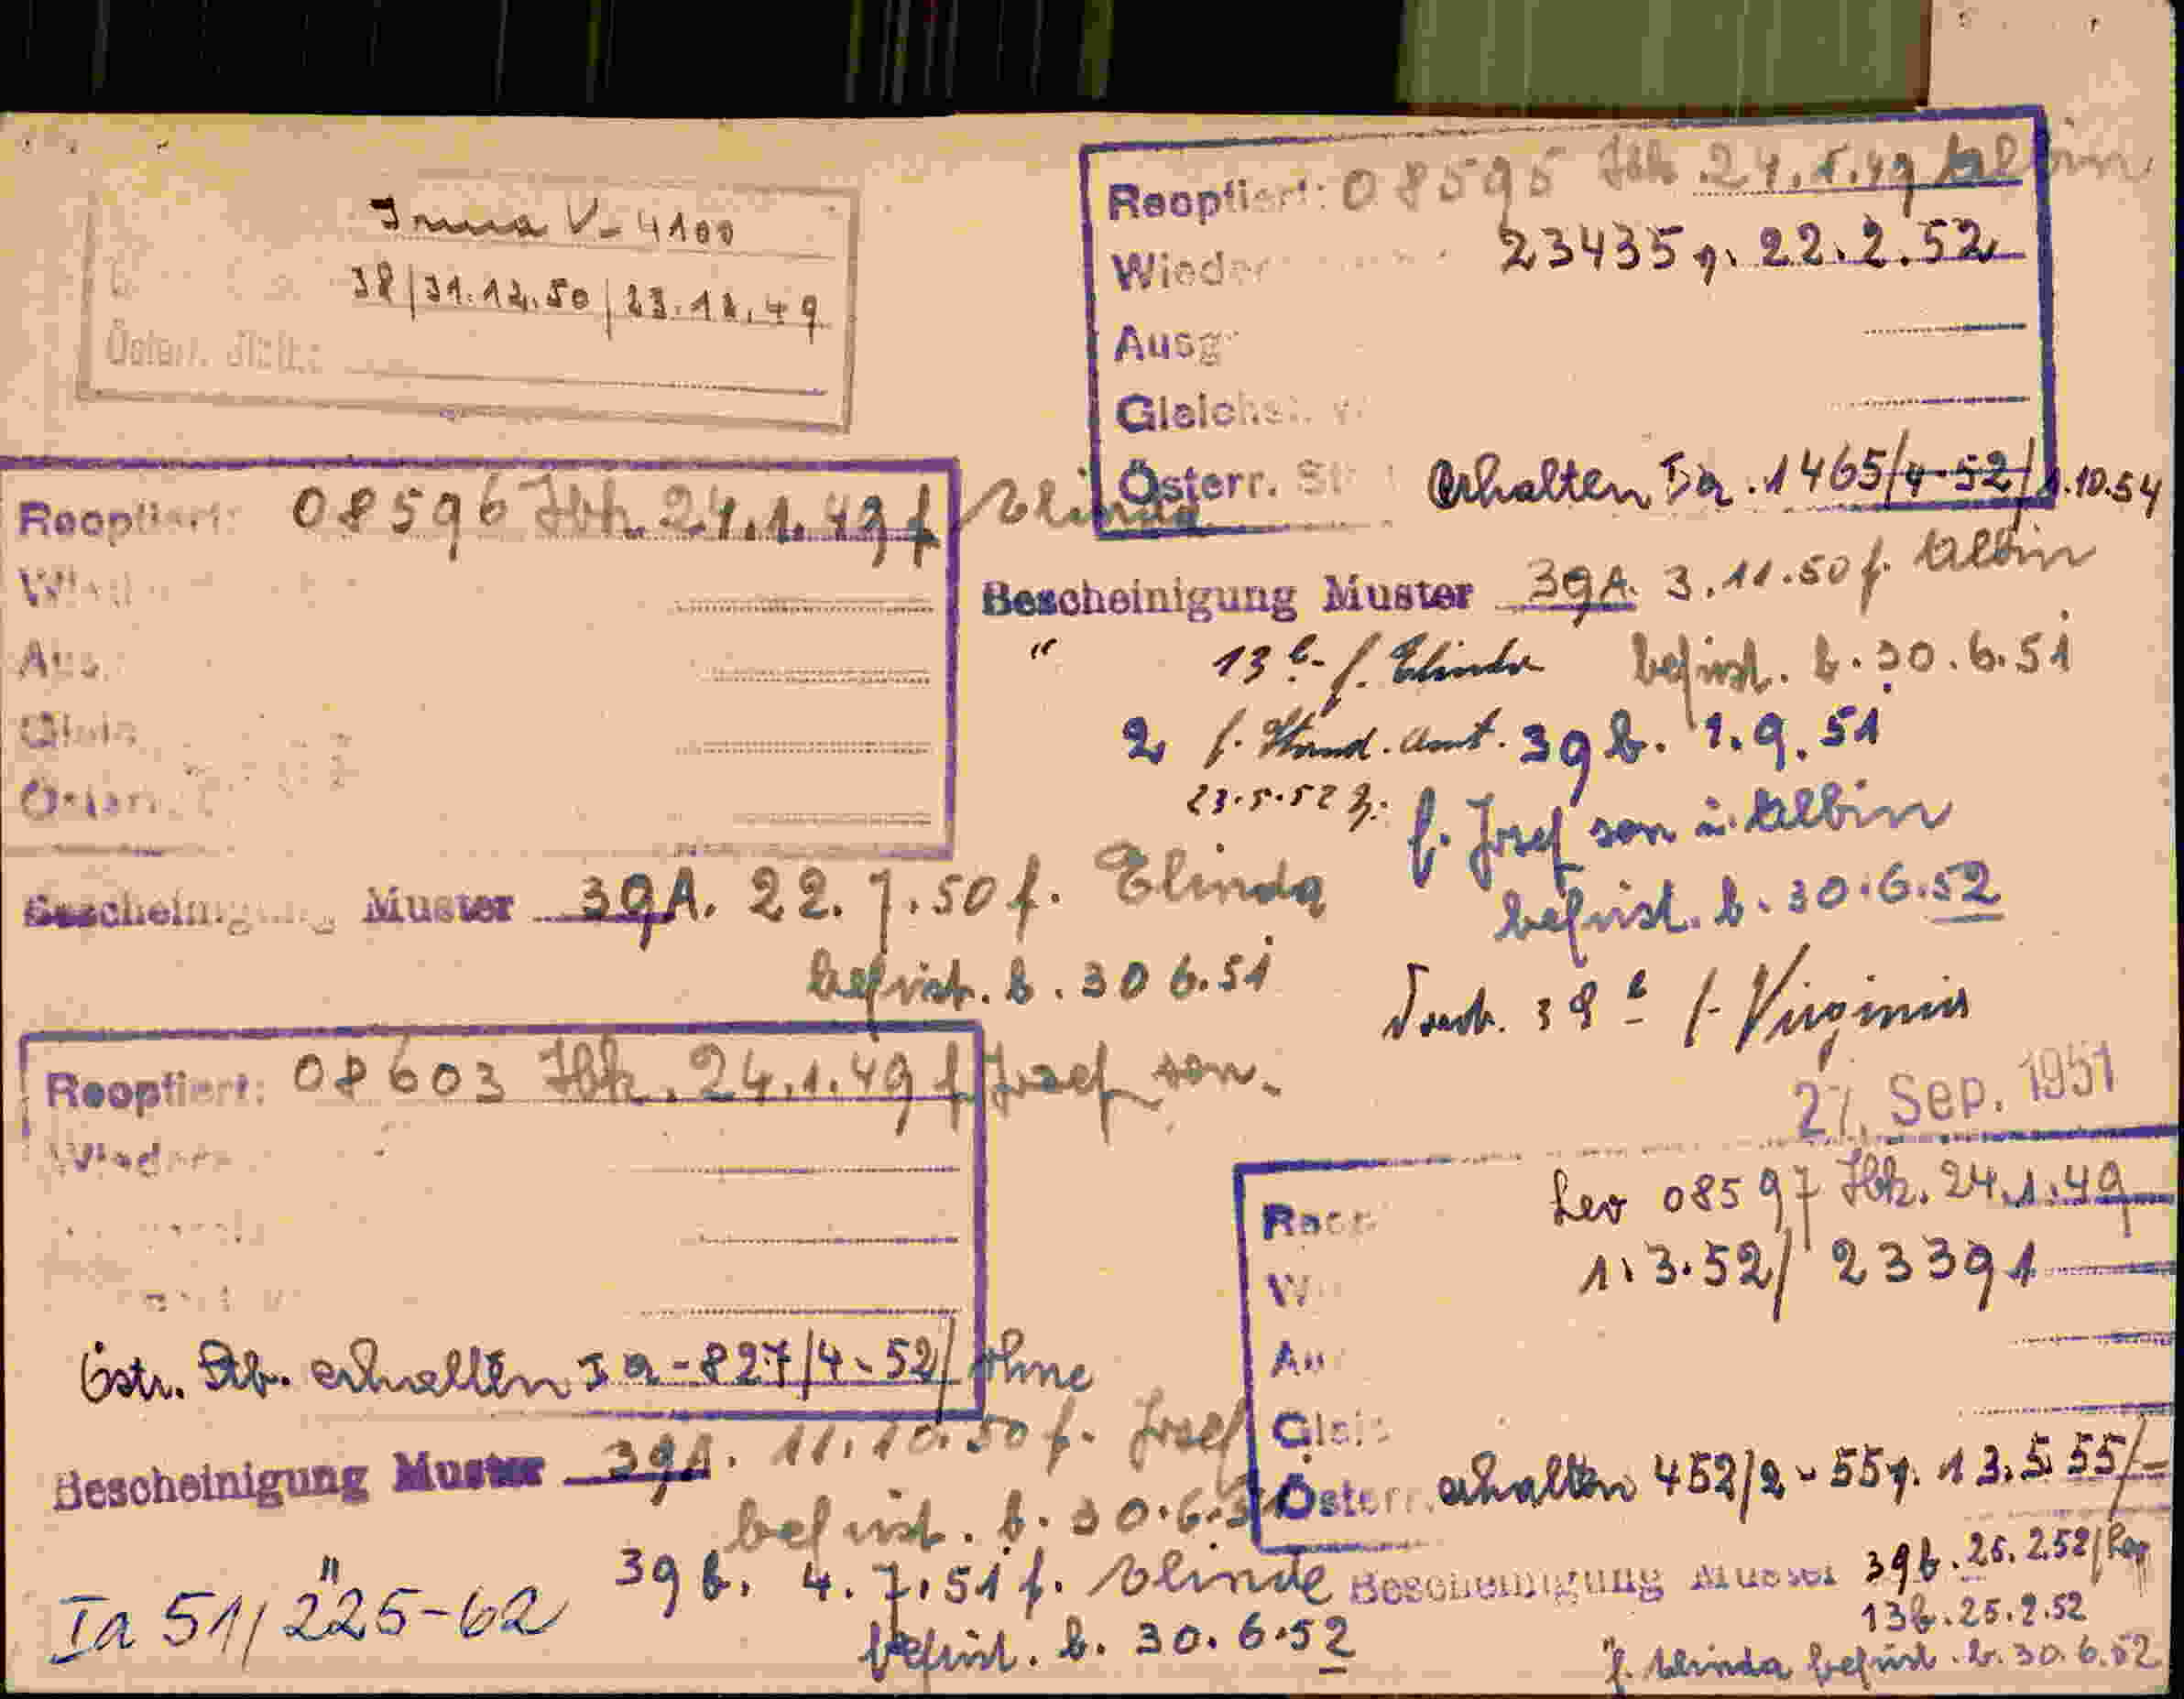 Irma V-4100
38/31.12.50/23.12.49
Österr. Stb.:
Reoptiert: 08595 Ibk 24.1.49 Albin
Wieder 23435 v. 22.2.52
Ausg
Gleichst.
Österr. St erhalten Ia.1465/4-52/1.10.54
Reoptiert: 08596 Ibk. 24.1.49 f Elinda
Wied
Aus
Gleic
Österr.
Bescheinigung Muster 39A. 3.11.50 f. Albin
" 13b. f. Elinda befrist. b. 30.6.51
2 f. Stand. Amt. 39 b. 1.9.51
23.5.52
f. Josef sen u. Albin
befrist. b. 30.6.52
Bescheinigung Muster 39A. 22.7.50 f. Elinda
befrist. b. 30 6.51
38 b f. Virginius
27. Sep. 1951
Reoptiert: 08603 Ibk. 24.1.49 f Josef sen.
Wieder
Östr. Stb. erhalten Ia-827/4-52/ Ohne
Bescheinigung Muster 39A. 11.10.50 f. Josef
befrist. b. 30.6.51
" 39 b. 4.7.51 f. Elinde
befrist. b. 30.6.52
Ia 51/225-62
Reop Leo 08597 Ibk. 24.1.49
W 1.3.52/ 23391
Au
Gleic
Österr. erhalten 452/2-55 v. 13.5.55/-
Bescheinigung Muster 39b. 26.2.52/
13b. 25.2.52
" f. Elinda befrist. b. 30.6.52